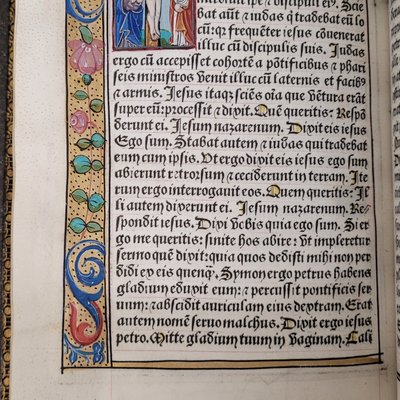 introiuit ipse ⁊ discipuli ei⁹.
Scie bat aūt ⁊ iudas q̇ tradebat eū lo
cū: q̇r frequēter iesus cōuenerat
illuc cū discipulis suis. Judas
ergo cū accepisset cohortē a pontificibus ⁊ phari
seis ministros venit illuc cū laternis et facib⁹
⁊ armis. Jesus itaq; sciēs oīa que vētura erāt
super eū: processit ⁊ dixit. Quē queritis: Respō
derunt ei. Jesum nazarenum. Dixit eis iesus
Ego sum. Stabat autem ⁊ iudas qui tradebat
eum cum ipsis. Ut ergo dixit eis ego sum
abierunt retrorsum ⁊ ceciderunt in terram. Ite
rum ergo interrogauit eos. Quem queritis: Il
li autem dixerunt ei. Jesum nazarenum. Re
spondit iesus. Dixi vobis quia ego sum. Si er
go me queritis: sinite hos abire: Ut impleretur
sermo quē dixit: quia quos dedisti mihi non per
didi ex eis quenq̄. Symon ergo petrus habens
gladium eduxit eum: ⁊ percussit pontificis ser
uum: ⁊ abscidit auriculam eius dextram. Erat
autem nomē seruo malchus. Dixit ergo iesus
petro. Mitte gladium tuum in vaginam. Cali